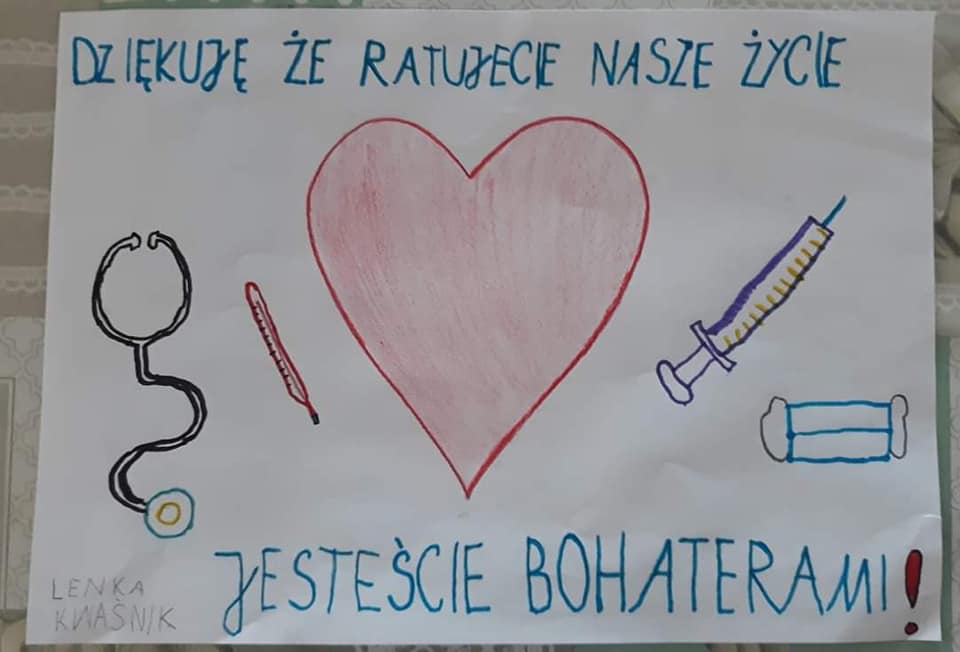 DZIĘKUJĘ ŻE RATUJECIE NASZE ŻYCIE
JESTEŚCIE BOHATERAMI!
LENKA
KWAŚNIK